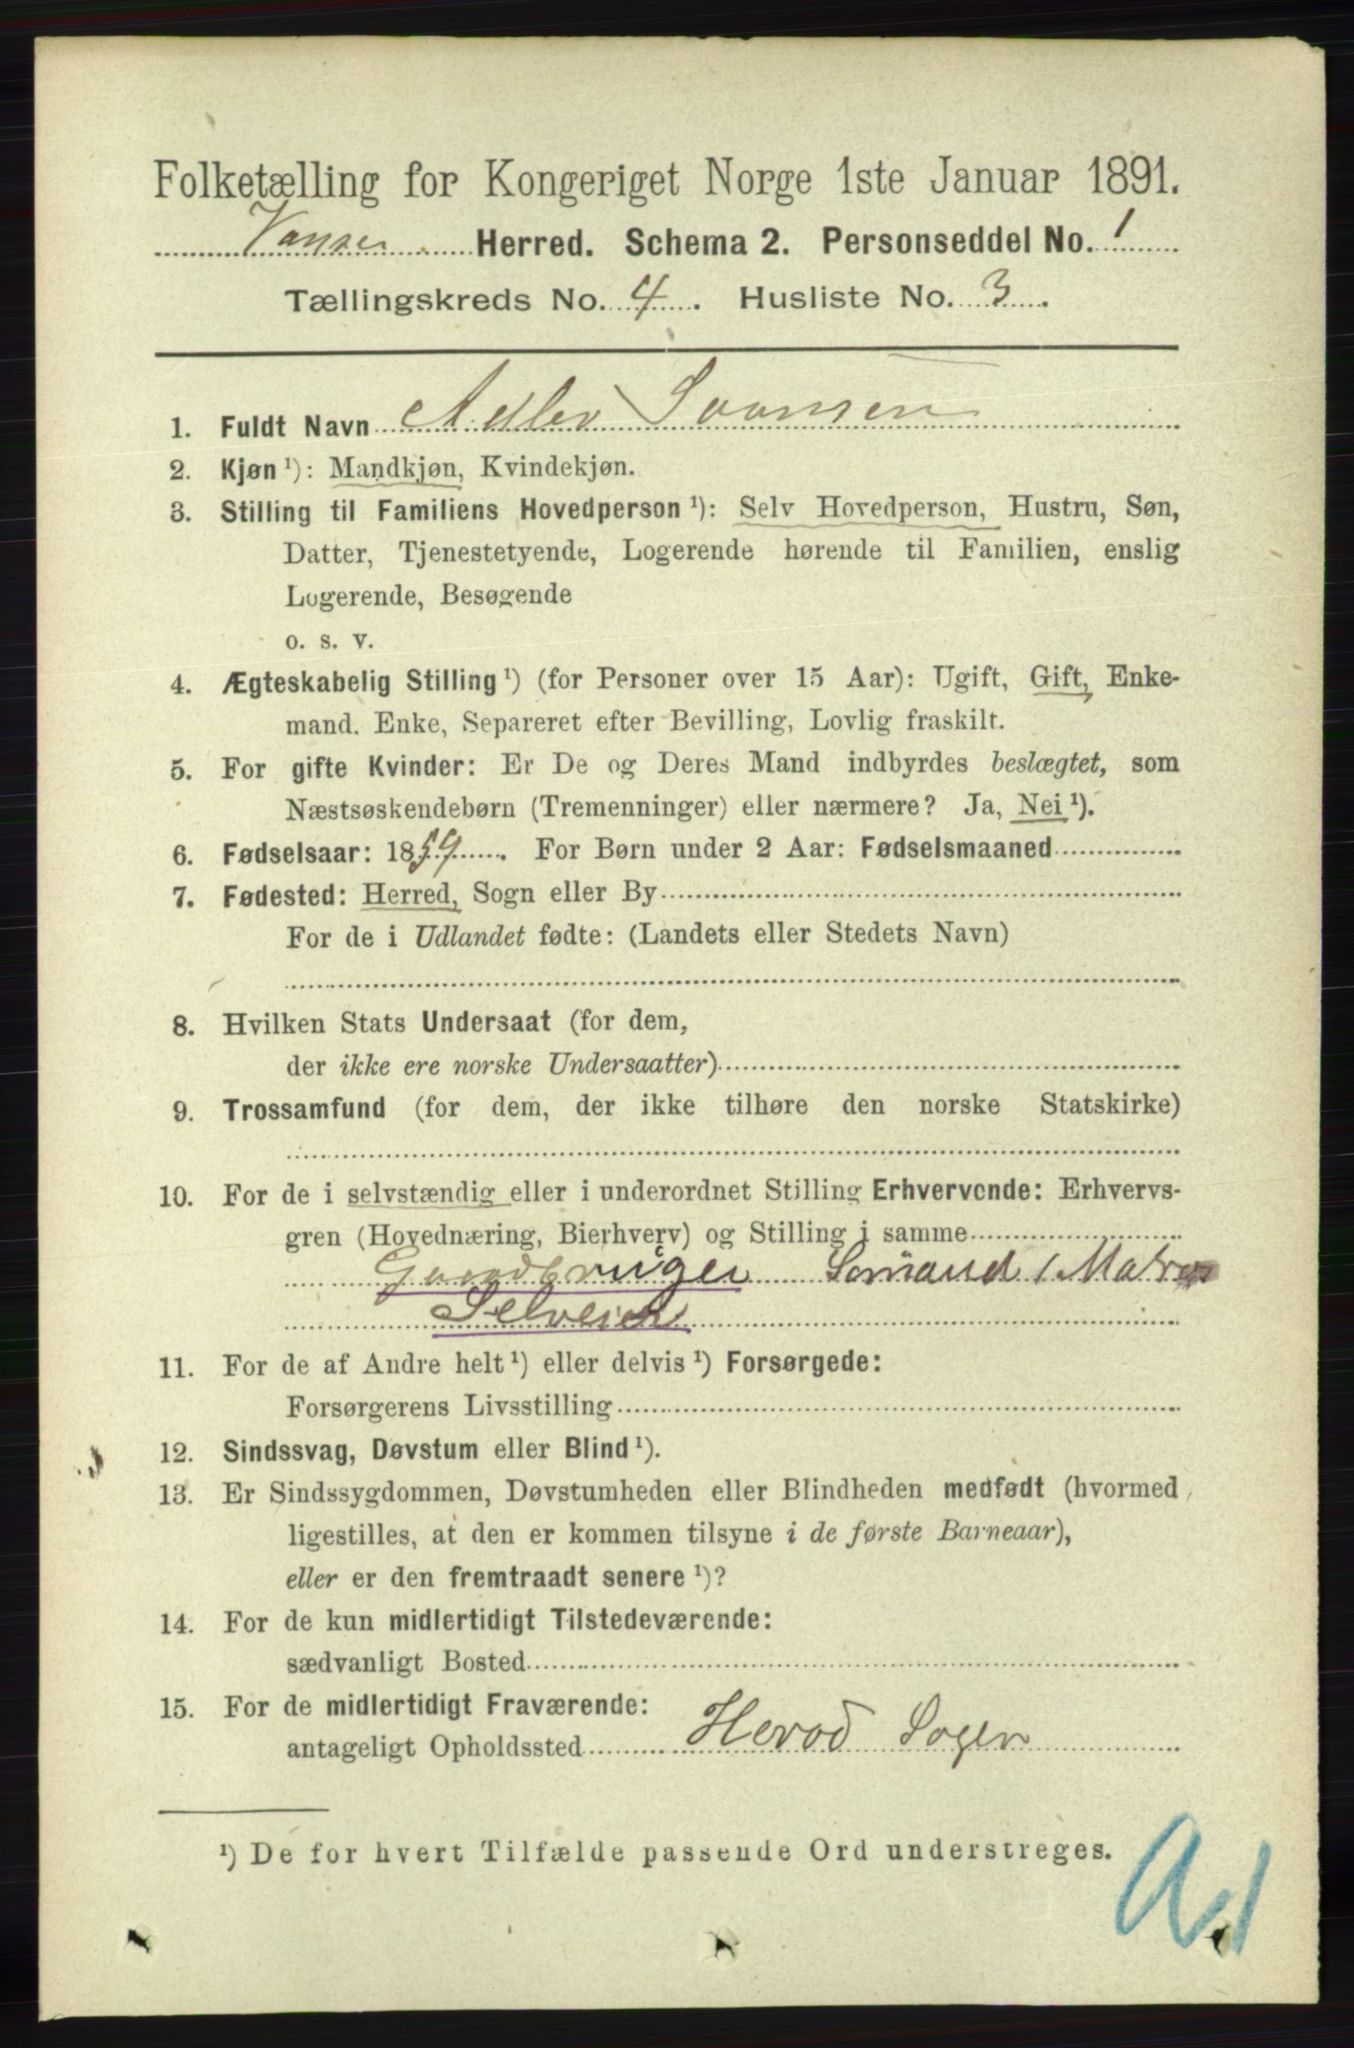 Folketælling for Kongeriget Norge 1ste Januar 1891.
Vanse Herred. Schema 2. Personseddel No. 1
Tællingskreds No. 4. Husliste No. 3.
1. Fuldt Navn Adler Svensen
2. Kjøn ¹): Mandkjøn, Kvindekjøn.
3. Stilling til Familiens Hovedperson ¹): Selv Hovedperson, Hustru, Søn,
Datter, Tjenestetyende, Logerende hørende til Familien, enslig
Logerende, Besøgende
o. s. v.
4. Ægteskabelig Stilling ¹) (for Personer over 15 Aar): Ugift, Gift, Enke-
mand. Enke, Separeret efter Bevilling, Lovlig fraskilt.
5. For gifte Kvinder: Er De og Deres Mand indbyrdes beslægtet, som
Næstsøskendebørn (Tremenninger) eller nærmere? Ja, Nei ¹).
6. Fødselsaar: 1859. For Børn under 2 Aar: Fødselsmaaned
7. Fødested: Herred, Sogn eller By
For de i Udlandet fødte: (Landets eller Stedets Navn)
8. Hvilken Stats Undersaat (for dem,
der ikke ere norske Undersaatter)
9. Trossamfund (for dem, der ikke tilhøre den norske Statskirke)
10. For de i selvstændig eller i underordnet Stilling Erhvervende: Erhvervs-
gren (Hovednæring, Bierhverv) og Stilling i samme
Gaardbruger Sømand / Matros
Selveier
11. For de af Andre helt ¹) eller delvis ¹) Forsørgede:
Forsørgerens Livsstilling
12. Sindssvag, Døvstum eller Blind ¹).
13. Er Sindssygdommen, Døvstumheden eller Blindheden medfødt (hvormed
ligestilles, at den er kommen tilsyne i de første Barneaar),
eller er den fremtraadt senere ¹)?
14. For de kun midlertidigt Tilstedeværende:
sædvanligt Bosted
15. For de midlertidigt Fraværende:
antageligt Opholdssted
¹) De for hvert Tilfælde passende Ord understreges.